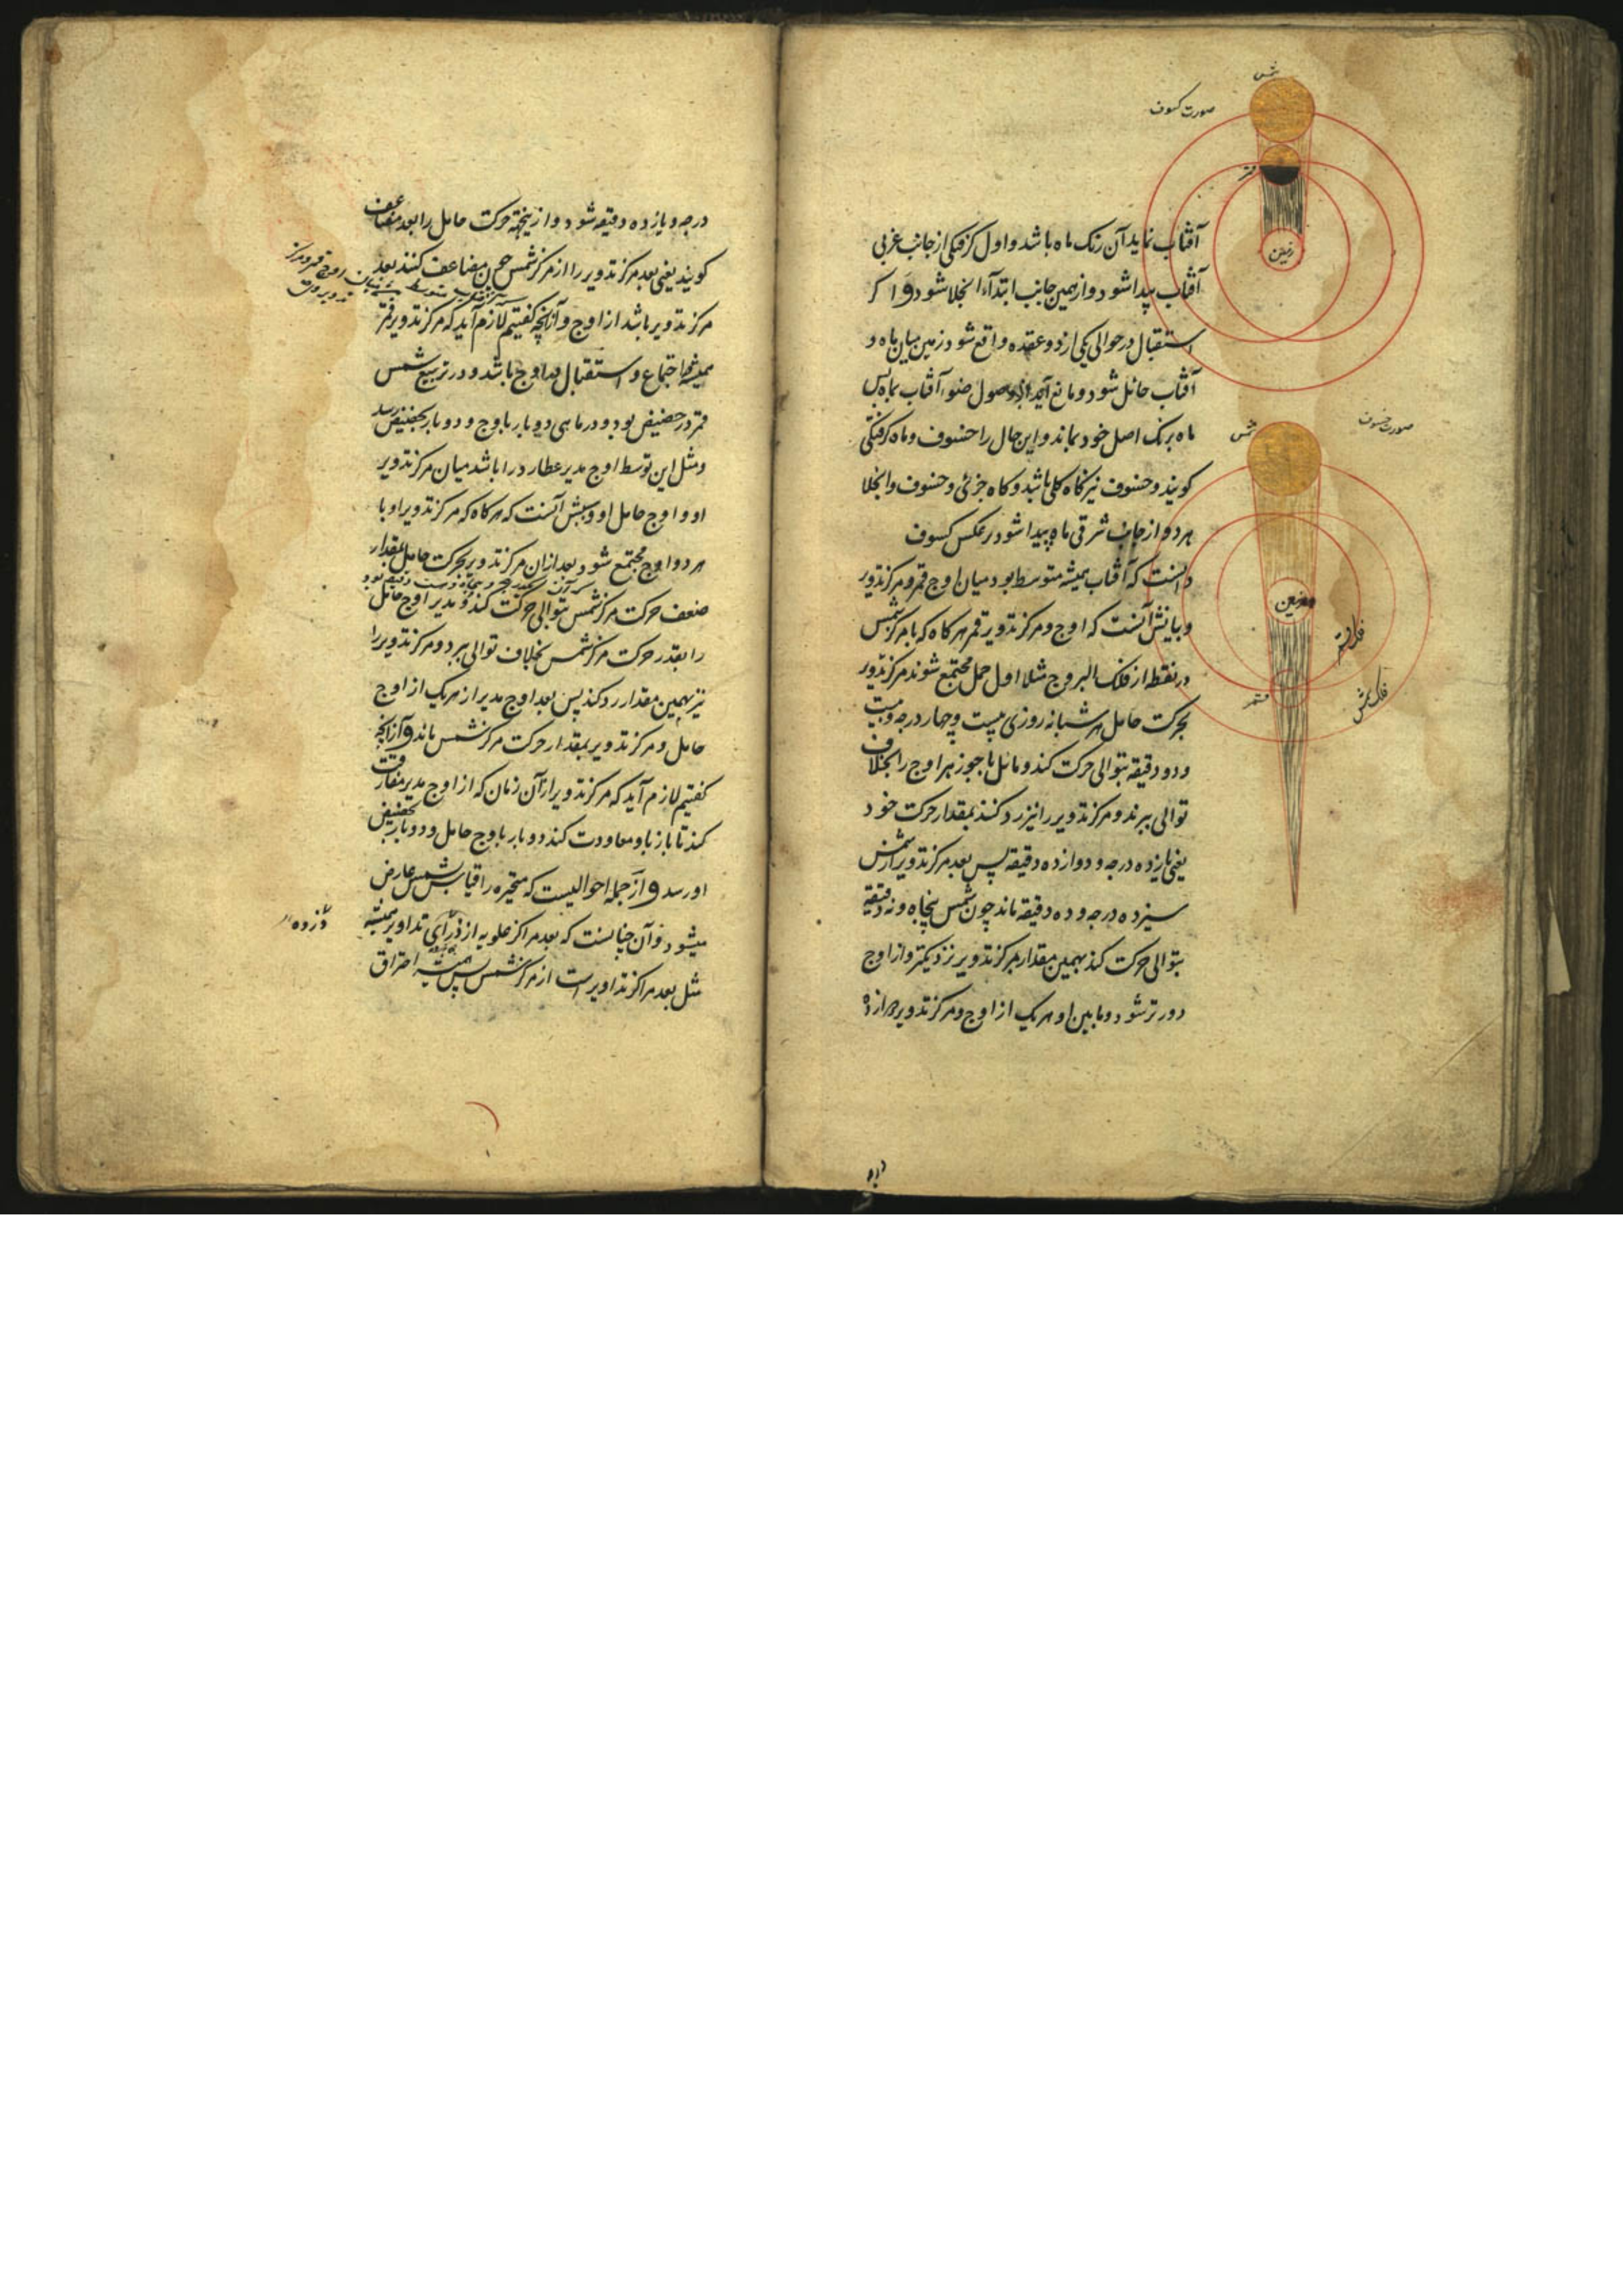 شمس
صورت کسوف
قمر
زمین
آفتاب نماید آن رنک ماه باشد و اول کرفتکی از جانب غربی
آفتاب پیدا شود و از همین جانب ابتداء انجلا شود و اکر
استقبال در حوالی یکی از دو عقده واقع شود زمین میان ماه و
آفتاب حائل شود و مانع آید از وصول ضوء آفتاب بماه پس
ماه برنک اصل خود بماند و این حال را خسوف و ماه کرفتکی
کویند و خسوف نیز کاه کلی باشد و کاه جزئی و خسوف و انجلا
هر دو از جانب شرقی ماه پیدا شود بر عکس کسوف
دانست که آفتاب همیشه متوسط بود میان اوج قمر و مرکز تدویر
و بیانش آنست که اوج و مرکز تدویر قمر هر کاه که با مرکز شمس
در نقطه از فلک البروج مثلا اول حمل مجتمع شوند مرکز تدویر
بحرکت حامل هر شبانه روزی بیست و چهار درجه و بیست
و دو دقیقه بتوالی حرکت کند و مائل با جوزهر اوج را بخلاف
توالی ببرند و مرکز تدویر را نیز رد کنند بمقدار حرکت خود
یعنی یازده درجه و دوازده دقیقه پس بعد مرکز تدویر از شمس
سیزده درجه و ده دقیقه ماند چون شمس پنجاه و نه دقیقه
بتوالی حرکت کند بهمین مقدار بمرکز تدویر نزدیکتر و از اوج
دورتر شود و ما بین او و هر یک از اوج و مرکز تدویر دوازده
صورت خسوف
شمس
زمین
فلک قمر
فلک شمس
قمر
درجه و یازده دقیقه شود و ازینجهة حرکت حامل را بعد مضاعف
کویند یعنی بعد مرکز تدویر را از مرکز شمس چون مضاعف کنند بعد
مرکز تدویر باشد از اوج و از آنچه کفتیم لازم آید که مرکز تدویر قمر
همیشه در اجتماع و استقبال در اوج باشد و در تربیع شمس
قمر در حضیض بود و در ماهی دو بار باوج و دو بار بحضیض رسد
و مثل این توسط اوج مدیر عطارد را باشد میان مرکز تدویر
او و اوج حامل او و سببش آنست که هر کاه که مرکز تدویر او با
هر دو اوج مجتمع شود بعد ازان مرکز تدویر بحرکت حامل بمقدار
ضعف حرکت مرکز شمس بتوالی حرکت کند و مدیر اوج حامل
را بقدر حرکت مرکز شمس بخلاف توالی ببرد و مرکز تدویر را
نیز بهمین مقدار رد کند پس بعد اوج مدیر از هر یک از اوج
حامل و مرکز تدویر بمقدار حرکت مرکز شمس ماند و از آنچه
کفتیم لازم آید که مرکز تدویر از آن زمان که از اوج مدیر مفارقت
کند تا باز باو معاودت کند دو بار باوج حامل و دو بار بحضیض
او رسد و از جمله احوالیست که متحیره را قیاس بشمس عارض
میشود و آن چنانست که بعد مراکز علویه از ذرای تداویر همیشه
مثل بعد مراکز تداویر است از مرکز شمس پس همیشه احتراق
اوج قمر و مرکز
ذروه